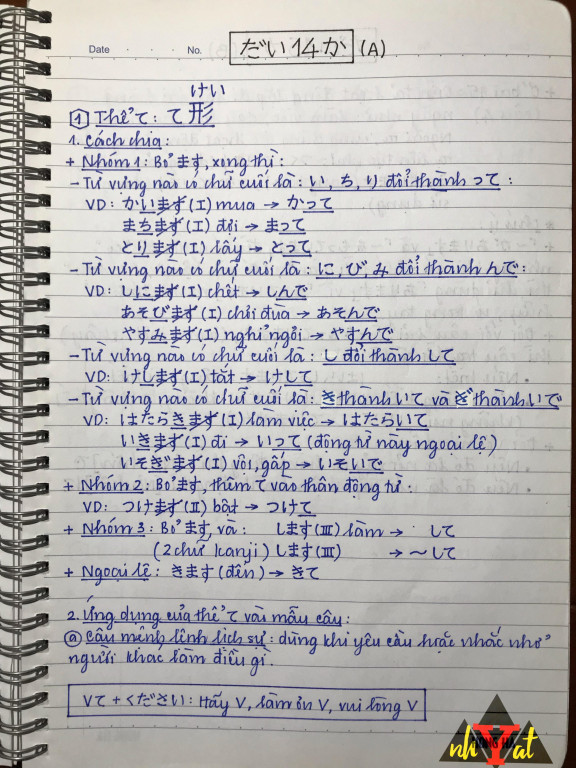 Date . . . No. だい14か (A)
けい
1 Thể て: て形
1. Cách chia:
+ Nhóm 1: Bỏ ます, xong thì:
- Từ vựng nào có chữ cuối là: い, ち, り đổi thành って:
VD: かいます (I) mua → かって
まちます (I) đợi → まって
とります (I) lấy → とって
- Từ vựng nào có chữ cuối là: に, び, み đổi thành んで:
VD: しにます (I) chết → しんで
あそびます (I) chơi đùa → あそんで
やすみます (I) nghỉ ngơi → やすんで
- Từ vựng nào có chữ cuối là: し đổi thành して
VD: けします (I) tắt → けして
- Từ vựng nào có chữ cuối là: き thành いて và ぎ thành いで
VD: はたらきます (I) làm việc → はたらいて
いきます (I) đi → いって (động từ này ngoại lệ)
いそぎます (I) vội, gấp → いそいで
+ Nhóm 2: Bỏ ます, thêm て vào thân động từ:
VD: つけます (II) bật → つけて
+ Nhóm 3: Bỏ ます, và: します (III) làm → して
(2 chữ kanji) します (III) → ～して
+ Ngoại lệ: きます (đến) → きて
2. Ứng dụng của thể て vài mẫu câu:
a Câu mệnh lệnh lịch sự: dùng khi yêu cầu hoặc nhắc nhở
người khác làm điều gì.
Vて + ください: Hãy V, làm ơn V, vui lòng V
nhYat